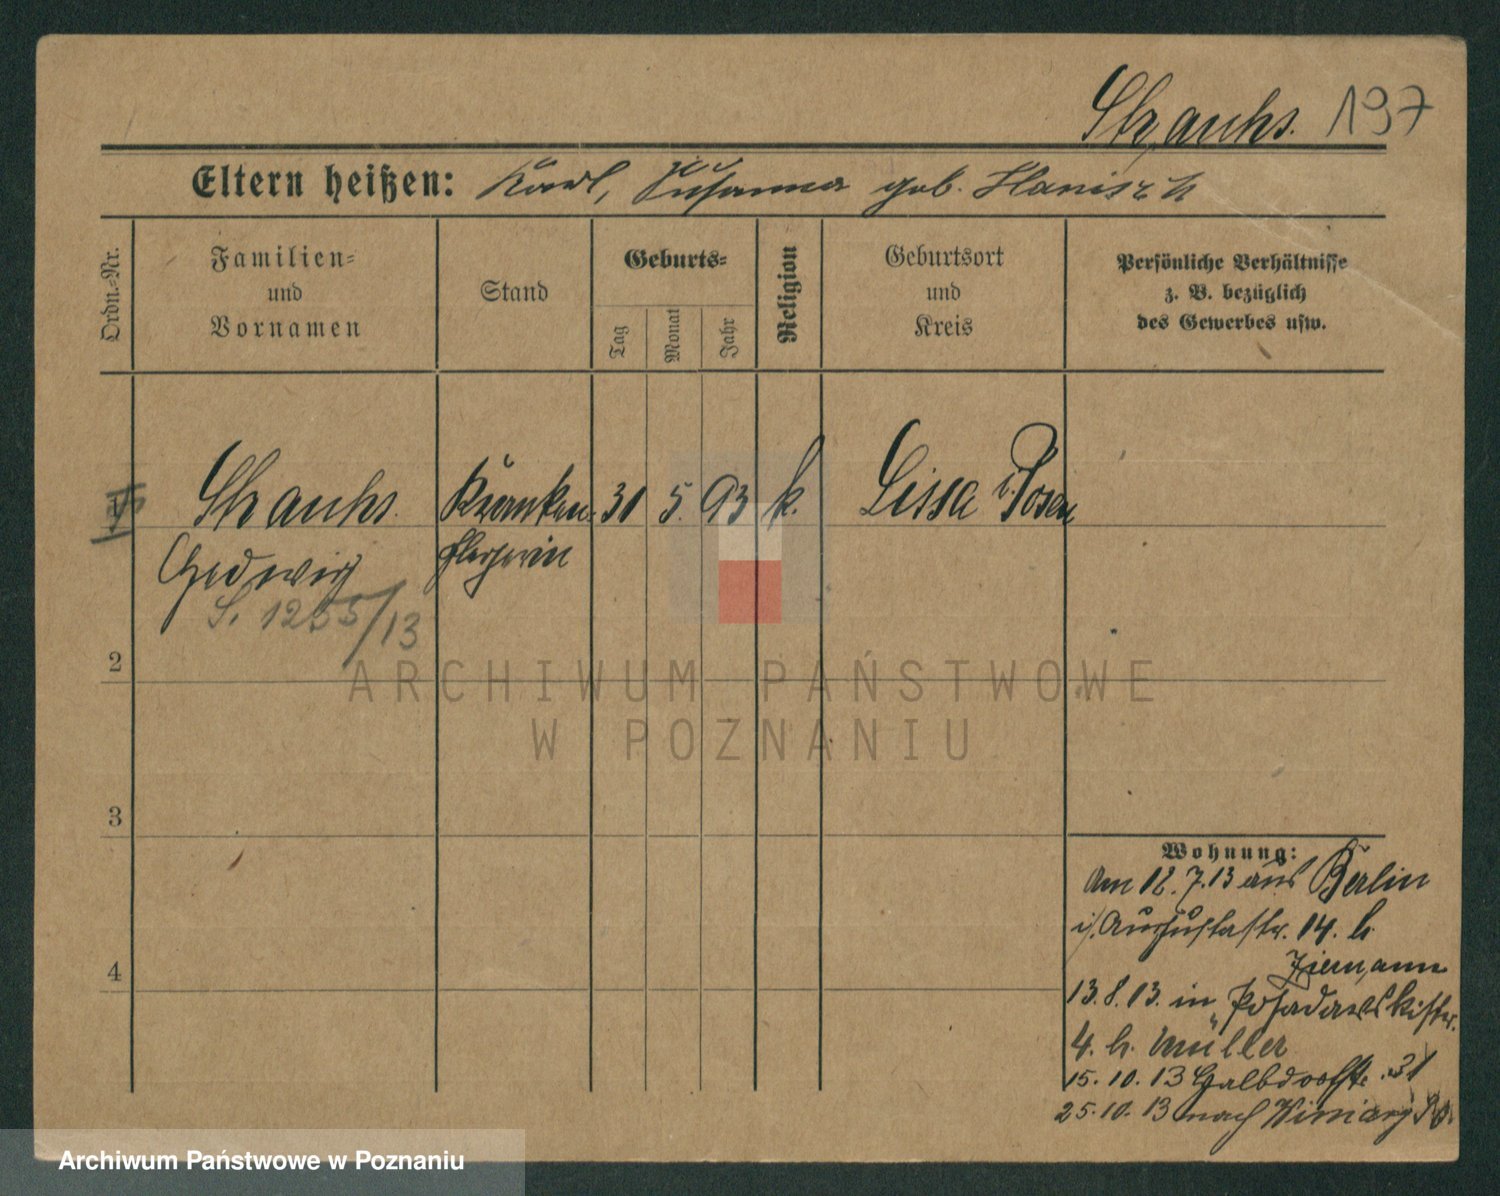 Strauhs. 197
Eltern heißen: Karl, Susanna geb. Hanisch
Ordn.-Nr.
Familien-
und
Vornamen
Stand
Geburts-
Tag
Monat
Jahr
Religion
Geburtsort
und
Kreis
Persönliche Verhältnisse
z. B. bezüglich
des Gewerbes usw.
Strauhs. Kranken- 31 5. 93 k. Lissa i. Posen
Hedwig pflegerin
S. 1255/13
2
3
4
Wohnung:
Am 12.7.13 aus Berlin
i/. Augustastr. 14. b.
Ziemann
13.8.13. in Posadowskistr.
4. b. Müller
15.10.13 31
25.10.13 nach Winiary
ARCHIWUM PAŃSTWOWE
W POZNANIU
Archiwum Państwowe w Poznaniu